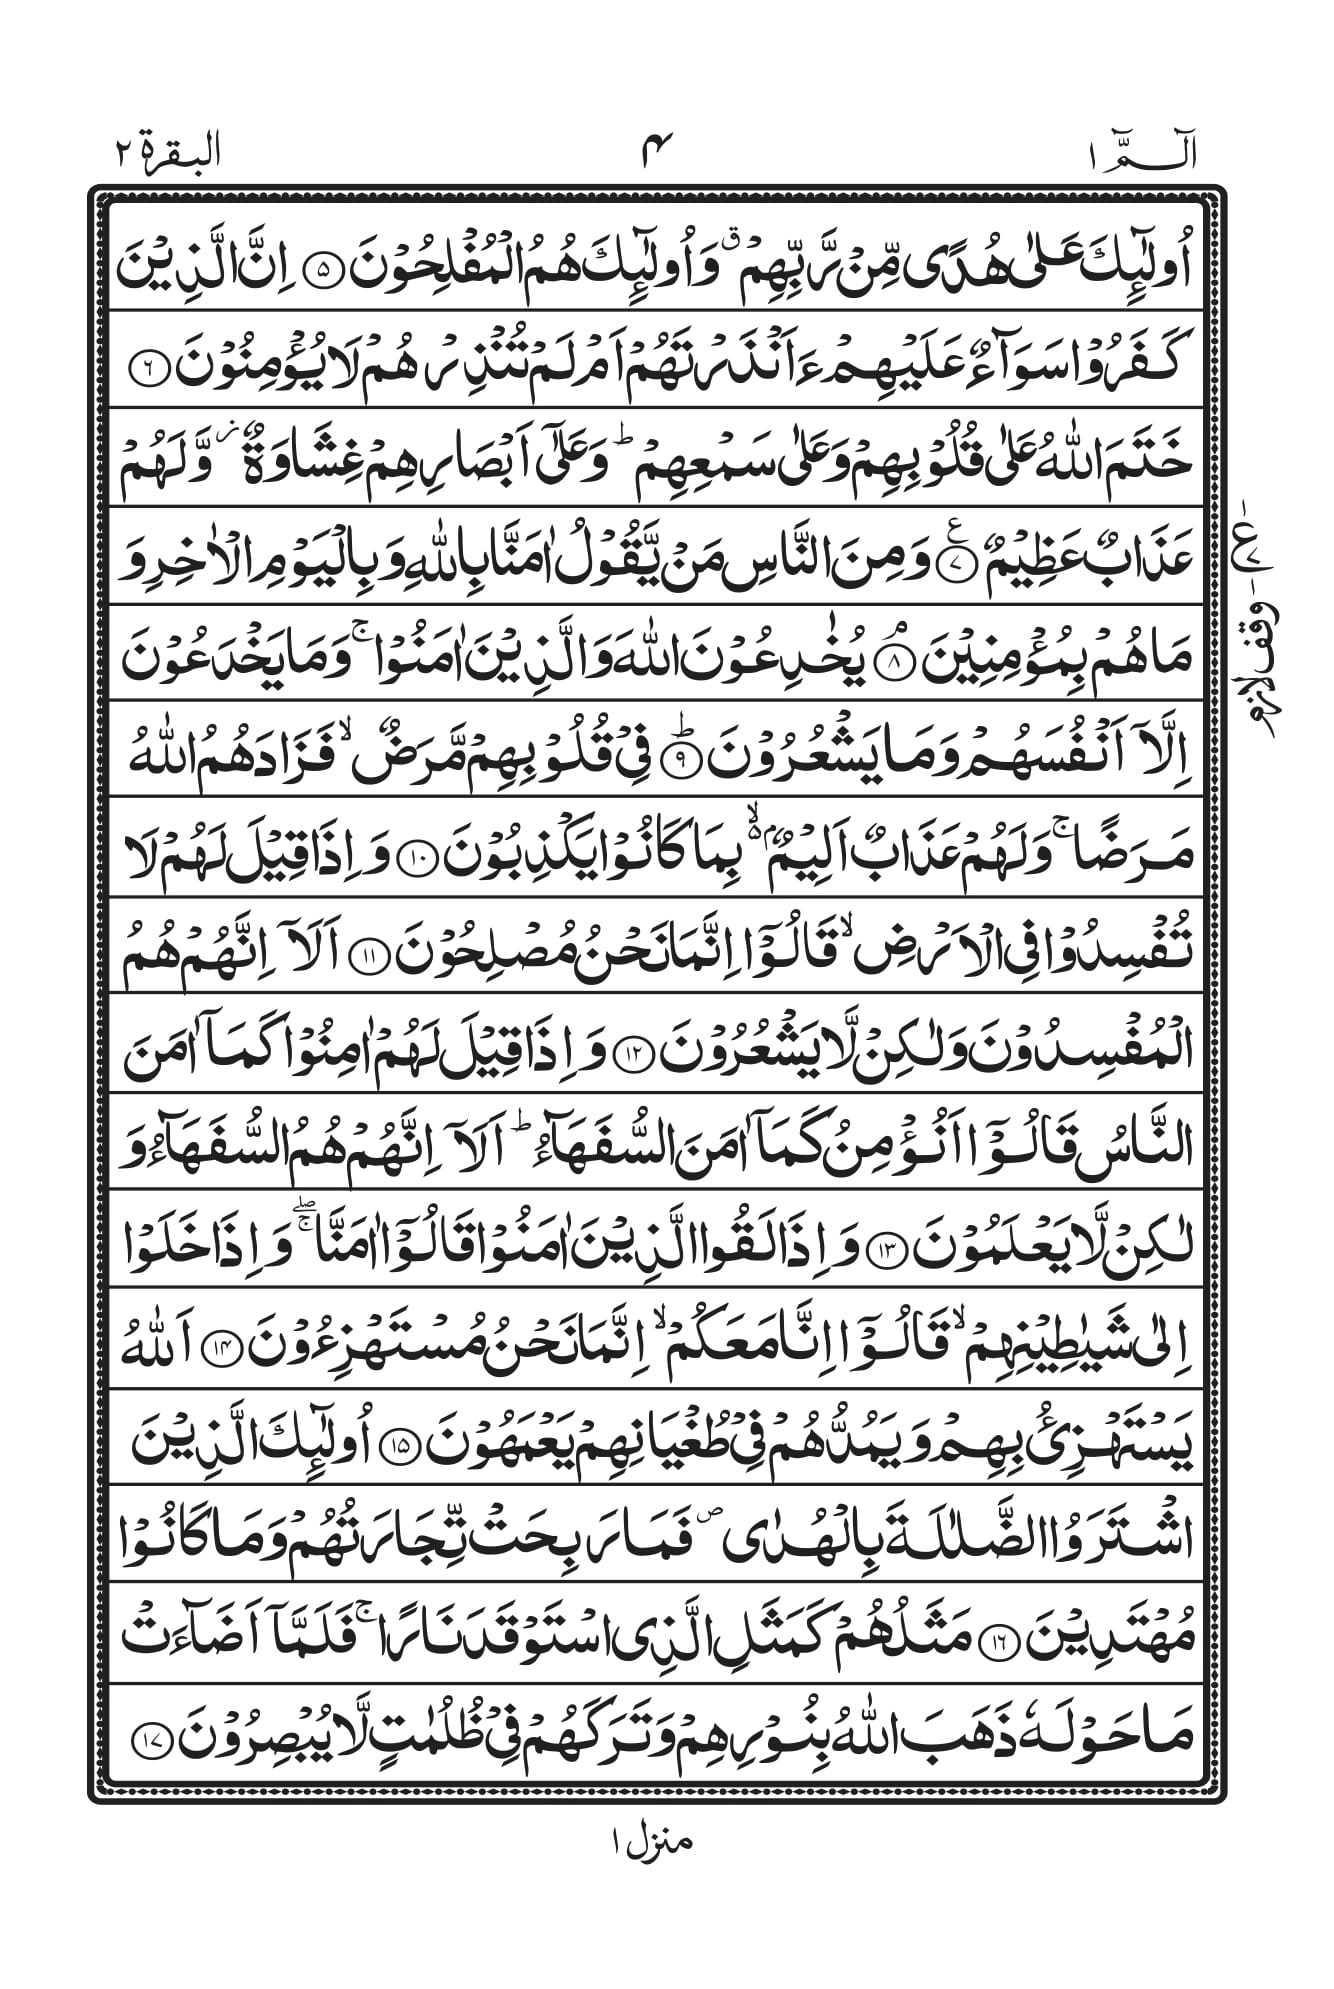 الٓـمّٓ ١
۴
البقرة ٢
اُولٰٓئِكَ عَلٰى هُدًى مِّنْ رَّبِّهِمْ ۗ وَاُولٰٓئِكَ هُمُ الْمُفْلِحُوْنَ ۝۵ اِنَّ الَّذِيْنَ
كَفَرُوْا سَوَآءٌ عَلَيْهِمْ ءَاَنْذَرْتَهُمْ اَمْ لَمْ تُنْذِرْهُمْ لَا يُؤْمِنُوْنَ ۝٦
خَتَمَ اللّٰهُ عَلٰى قُلُوْبِهِمْ وَعَلٰى سَمْعِهِمْ ؕ وَعَلٰٓى اَبْصَارِهِمْ غِشَاوَةٌ ز وَّلَهُمْ
عَذَابٌ عَظِيْمٌ ۝٧ ع وَمِنَ النَّاسِ مَنْ يَّقُوْلُ اٰمَنَّا بِاللّٰهِ وَبِالْيَوْمِ الْاٰخِرِ وَ
مَا هُمْ بِمُؤْمِنِيْنَ ۝٨ۘ يُخٰدِعُوْنَ اللّٰهَ وَالَّذِيْنَ اٰمَنُوْا ۚ وَمَا يَخْدَعُوْنَ
اِلَّآ اَنْفُسَهُمْ وَمَا يَشْعُرُوْنَ ۝٩ؕ فِيْ قُلُوْبِهِمْ مَّرَضٌ ۙ فَزَادَهُمُ اللّٰهُ
مَرَضًا ۚ وَلَهُمْ عَذَابٌ اَلِيْمٌۢ ۙ۵ بِمَا كَانُوْا يَكْذِبُوْنَ ۝١٠ وَاِذَا قِيْلَ لَهُمْ لَا
تُفْسِدُوْا فِي الْاَرْضِ ۙ قَالُوْٓا اِنَّمَا نَحْنُ مُصْلِحُوْنَ ۝١١ اَلَآ اِنَّهُمْ هُمُ
الْمُفْسِدُوْنَ وَلٰكِنْ لَّا يَشْعُرُوْنَ ۝١٢ وَاِذَا قِيْلَ لَهُمْ اٰمِنُوْا كَمَآ اٰمَنَ
النَّاسُ قَالُوْٓا اَنُؤْمِنُ كَمَآ اٰمَنَ السُّفَهَآءُ ؕ اَلَآ اِنَّهُمْ هُمُ السُّفَهَآءُ وَ
لٰكِنْ لَّا يَعْلَمُوْنَ ۝١٣ وَاِذَا لَقُوا الَّذِيْنَ اٰمَنُوْا قَالُوْٓا اٰمَنَّا ۖۚ وَاِذَا خَلَوْا
اِلٰى شَيٰطِيْنِهِمْ ۙ قَالُوْٓا اِنَّا مَعَكُمْ ۙ اِنَّمَا نَحْنُ مُسْتَهْزِءُوْنَ ۝١۴ اَللّٰهُ
يَسْتَهْزِئُ بِهِمْ وَيَمُدُّهُمْ فِيْ طُغْيَانِهِمْ يَعْمَهُوْنَ ۝١۵ اُولٰٓئِكَ الَّذِيْنَ
اشْتَرَوُا الضَّلٰلَةَ بِالْهُدٰى ص فَمَا رَبِحَتْ تِّجَارَتُهُمْ وَمَا كَانُوْا
مُهْتَدِيْنَ ۝١٦ مَثَلُهُمْ كَمَثَلِ الَّذِى اسْتَوْقَدَ نَارًا ۚ فَلَمَّآ اَضَآءَتْ
مَا حَوْلَهٗ ذَهَبَ اللّٰهُ بِنُوْرِهِمْ وَتَرَكَهُمْ فِيْ ظُلُمٰتٍ لَّا يُبْصِرُوْنَ ۝١٧
ع ٧
وقف لازم
منزل ١